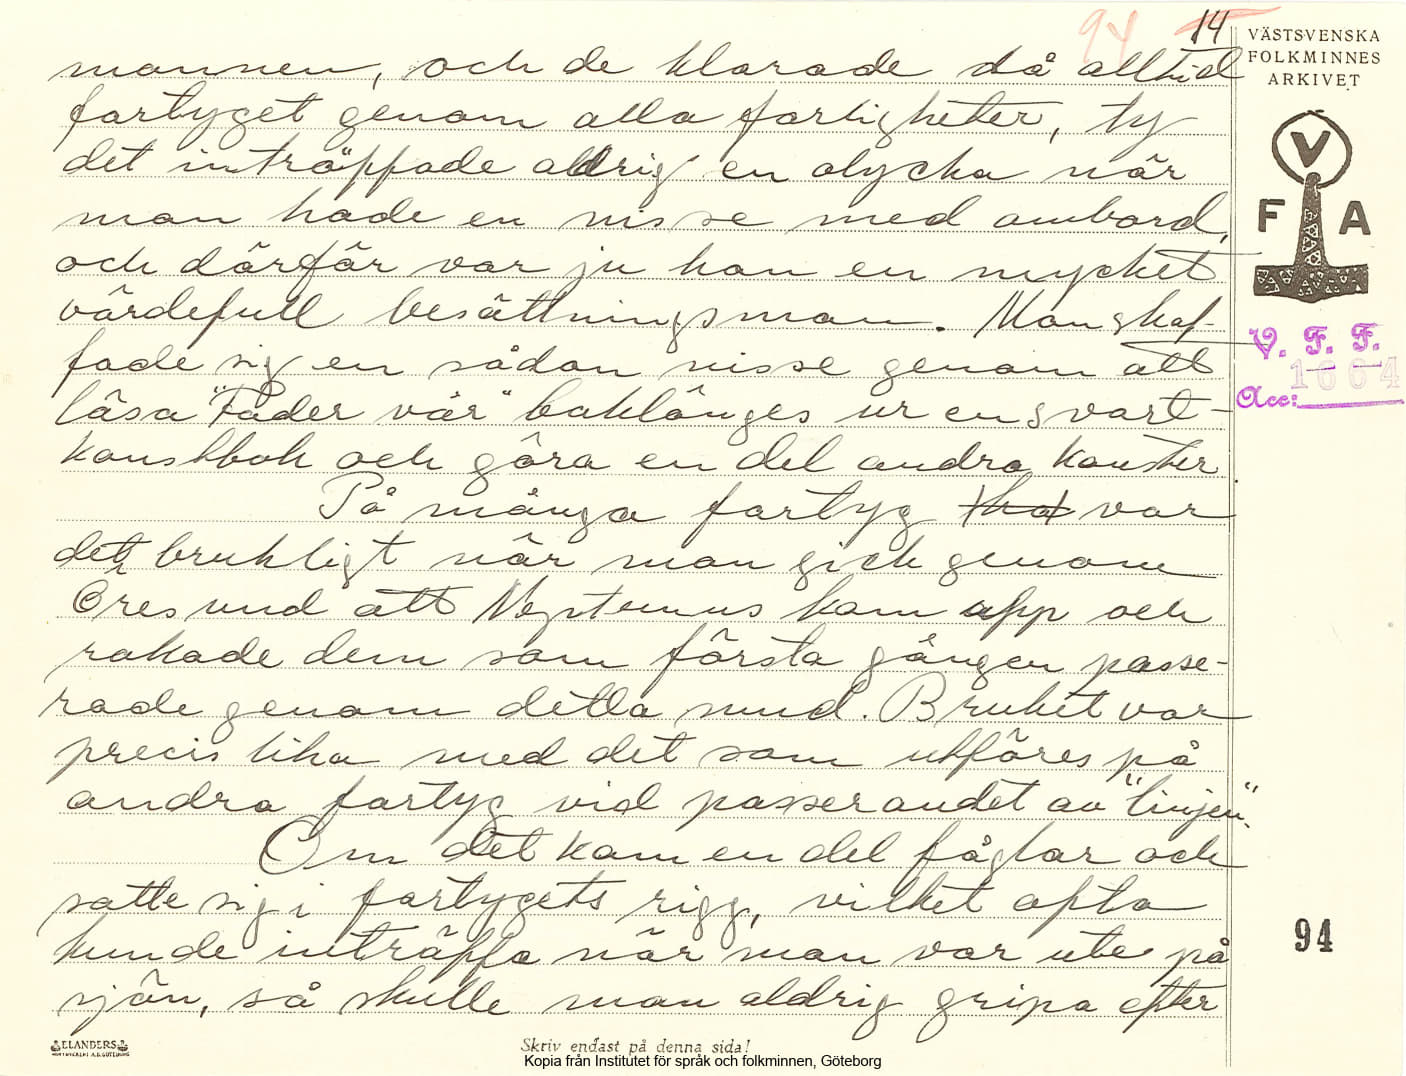 94 14
VÄSTSVENSKA
FOLKMINNES
ARKIVET
V
F A
V. F. F.
1664
Acc:
mannen, och de klarade då alltid
fartyget genom alla farligheter, ty
det inträffade aldrig en olycka när
man hade en nisse med ombord,
och därför var ju han en mycket
värdefull besättningsman. Man skaf-
fade sig en sådan nisse genom att
läsa "Fader vår" baklänges ur en svart-
konstbok och göra en del andra konster
På många fartyg var
det brukligt när man gick genom
Öresund att Neptunus kom upp och
rakade dem som första gången passe-
rade genom detta sund. Bruket var
precis lika med det som utföres på
andra fartyg vid passerandet av "linjen".
Om det kom en del fåglar och
satte sig i fartygets rigg, vilket ofta
kunde inträffa när man var ute på
sjön, så skulle man aldrig gripa efter
94
ELANDERS
Skriv endast på denna sida!
Kopia från Institutet för språk och folkminnen, Göteborg